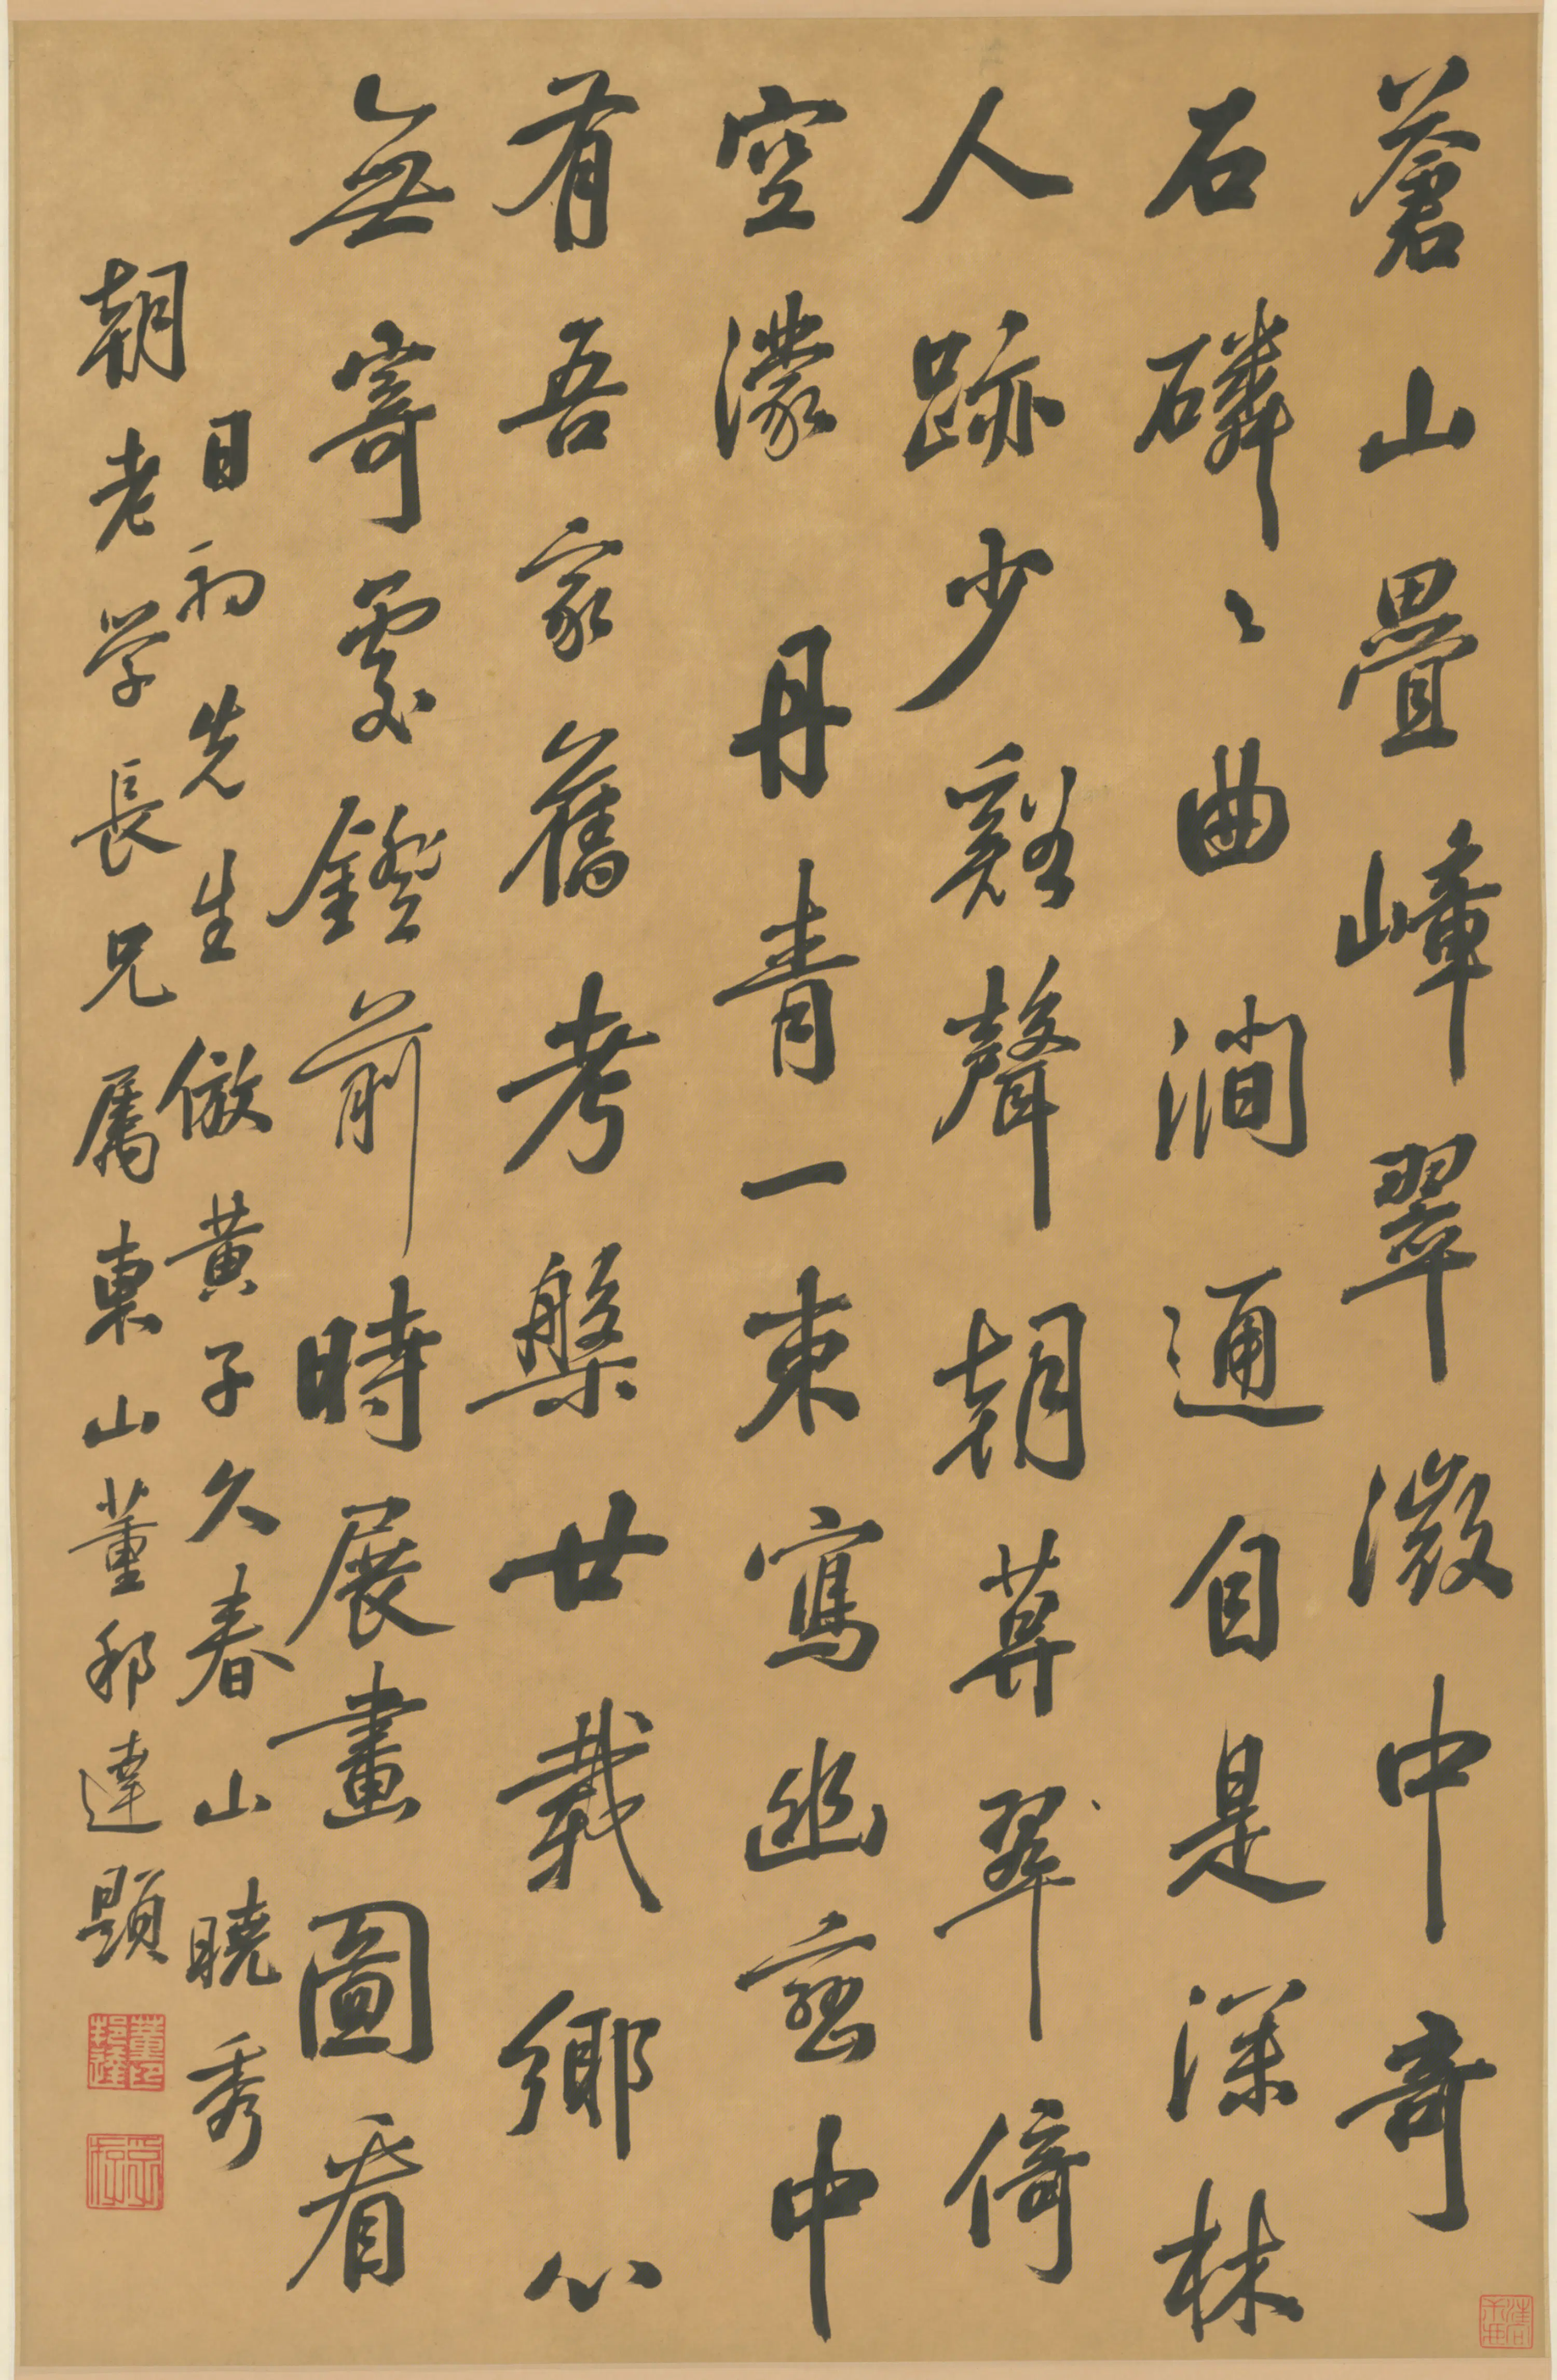 蒼山疊嶂翠微中奇
石磷〻曲澗通自是深林
人跡少谿聲朝暮翠倚
空濛丹青一束寫幽窓中
有吾家舊考槃廿載鄉心
無寄處鐙前時展畫圖看
目初先生倣黃子久春山曉秀
朝老学長兄屬東山董邦達題
董邦達印